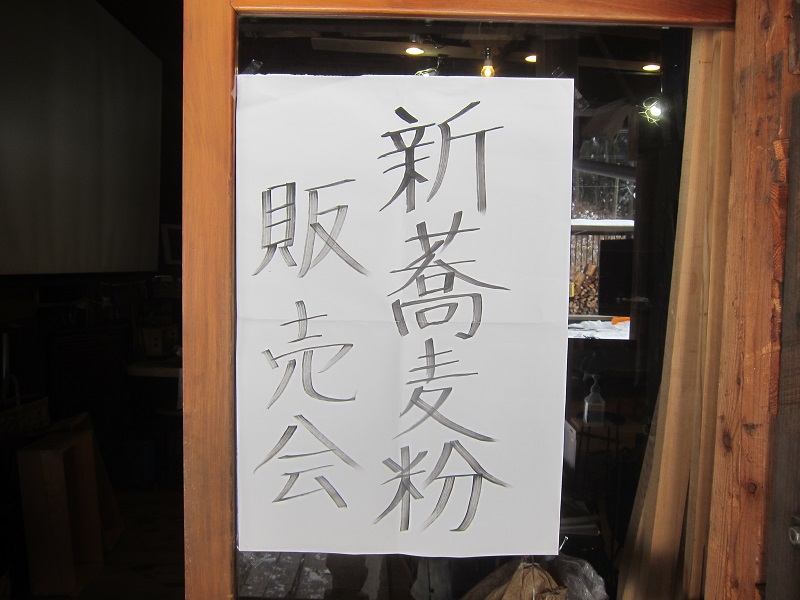 新蕎麦粉
販売会